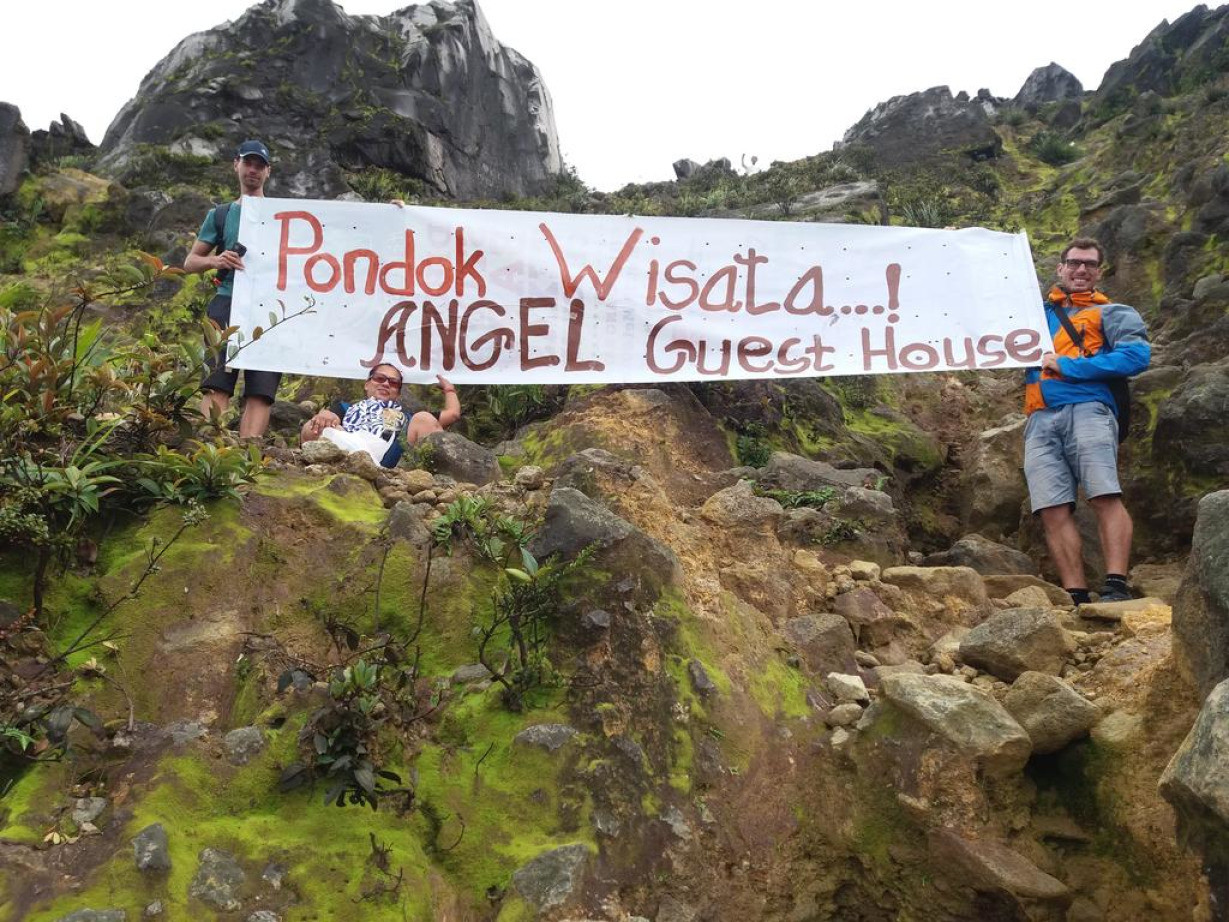 Pondok Wisata...!
ANGEL Guest House